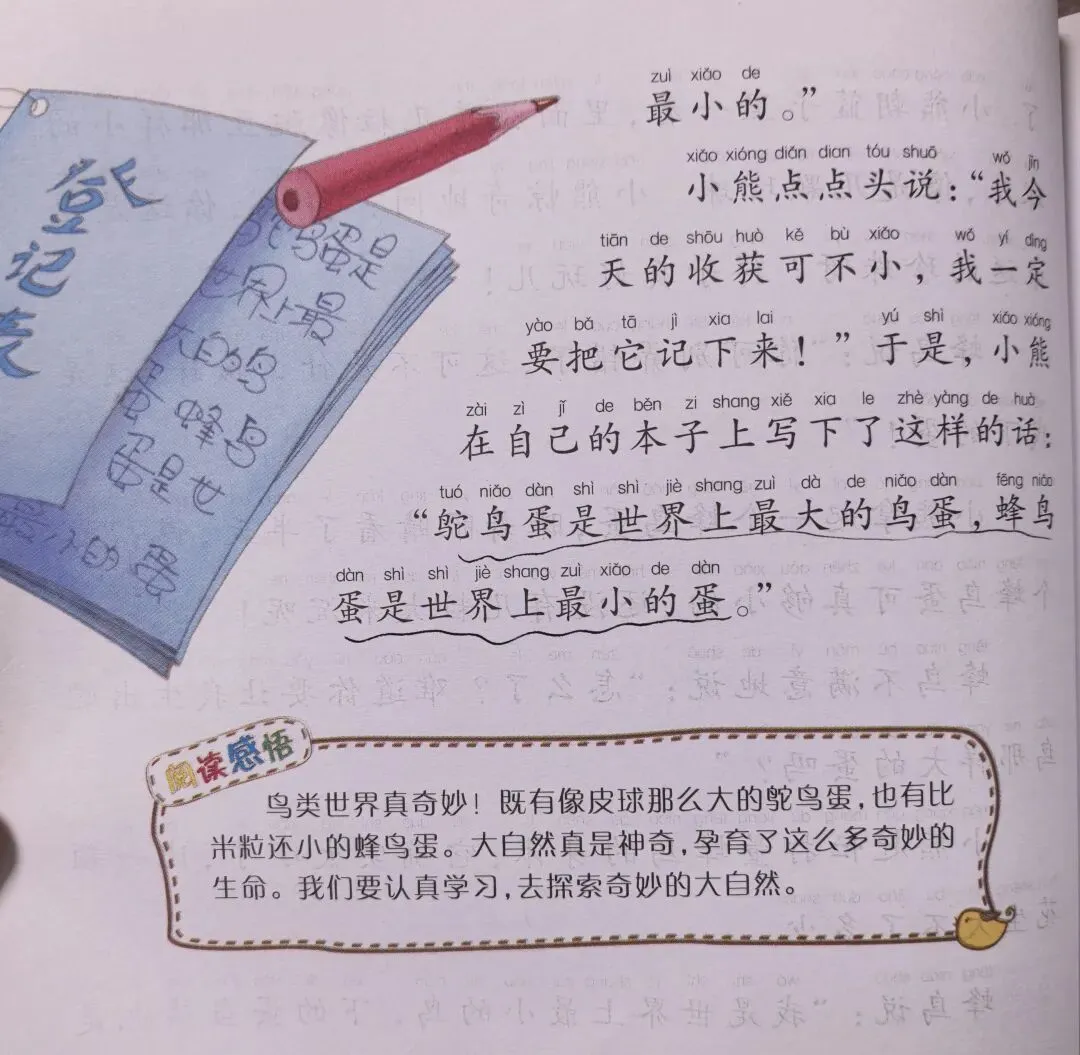 登记表
鸵鸟蛋是
世界上最
大的鸟
蛋 蜂鸟
蛋是世
最小的 蛋
zuì xiǎo de
最小的。”
xiǎo xióng diǎn dian tóu shuō wǒ jīn
小熊点点头说:“我今
tiān de shōu huò kě bù xiǎo wǒ yí dìng
天的收获可不小,我一定
yào bǎ tā jì xia lai yú shì xiǎo xióng
要把它记下来!”于是,小熊
zài zì jǐ de běn zi shang xiě xia le zhè yàng de huà
在自己的本子上写下了这样的话:
tuó niǎo dàn shì shì jiè shang zuì dà de niǎo dàn fēng niǎo
“鸵鸟蛋是世界上最大的鸟蛋,蜂鸟
dàn shì shì jiè shang zuì xiǎo de dàn
蛋是世界上最小的蛋。”
阅读感悟
鸟类世界真奇妙!既有像皮球那么大的鸵鸟蛋,也有比
米粒还小的蜂鸟蛋。大自然真是神奇,孕育了这么多奇妙的
生命。我们要认真学习,去探索奇妙的大自然。